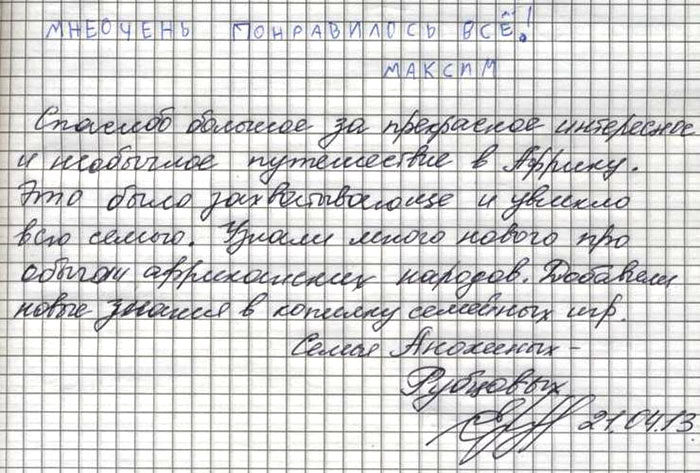 МНЕ ОЧЕНЬ ПОНРАВИЛОСЬ ВСЁ!
МАКСИМ
Спасибо большое за прекрасное интересное
и необычное путешествие в Африку.
Это было захватывающе и увлекло
всю семью. Узнали много нового про
обычаи африканских народов. Добавили
новые знания в копилку семейных игр.
Семья Анохиных -
Рубцовых
21.04.13.